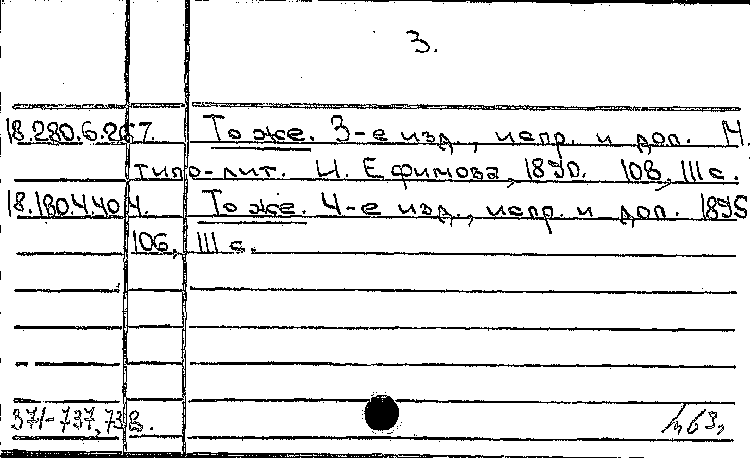 3.
18.280.6.267. То же. 3-е изд., испр. и доп. М.
типо-лит. И. Ефимова, 1890. 108, III с.
18.180.4.404. То же. 4-е изд., испр. и доп. 1895
106, III с.
371-737,738.